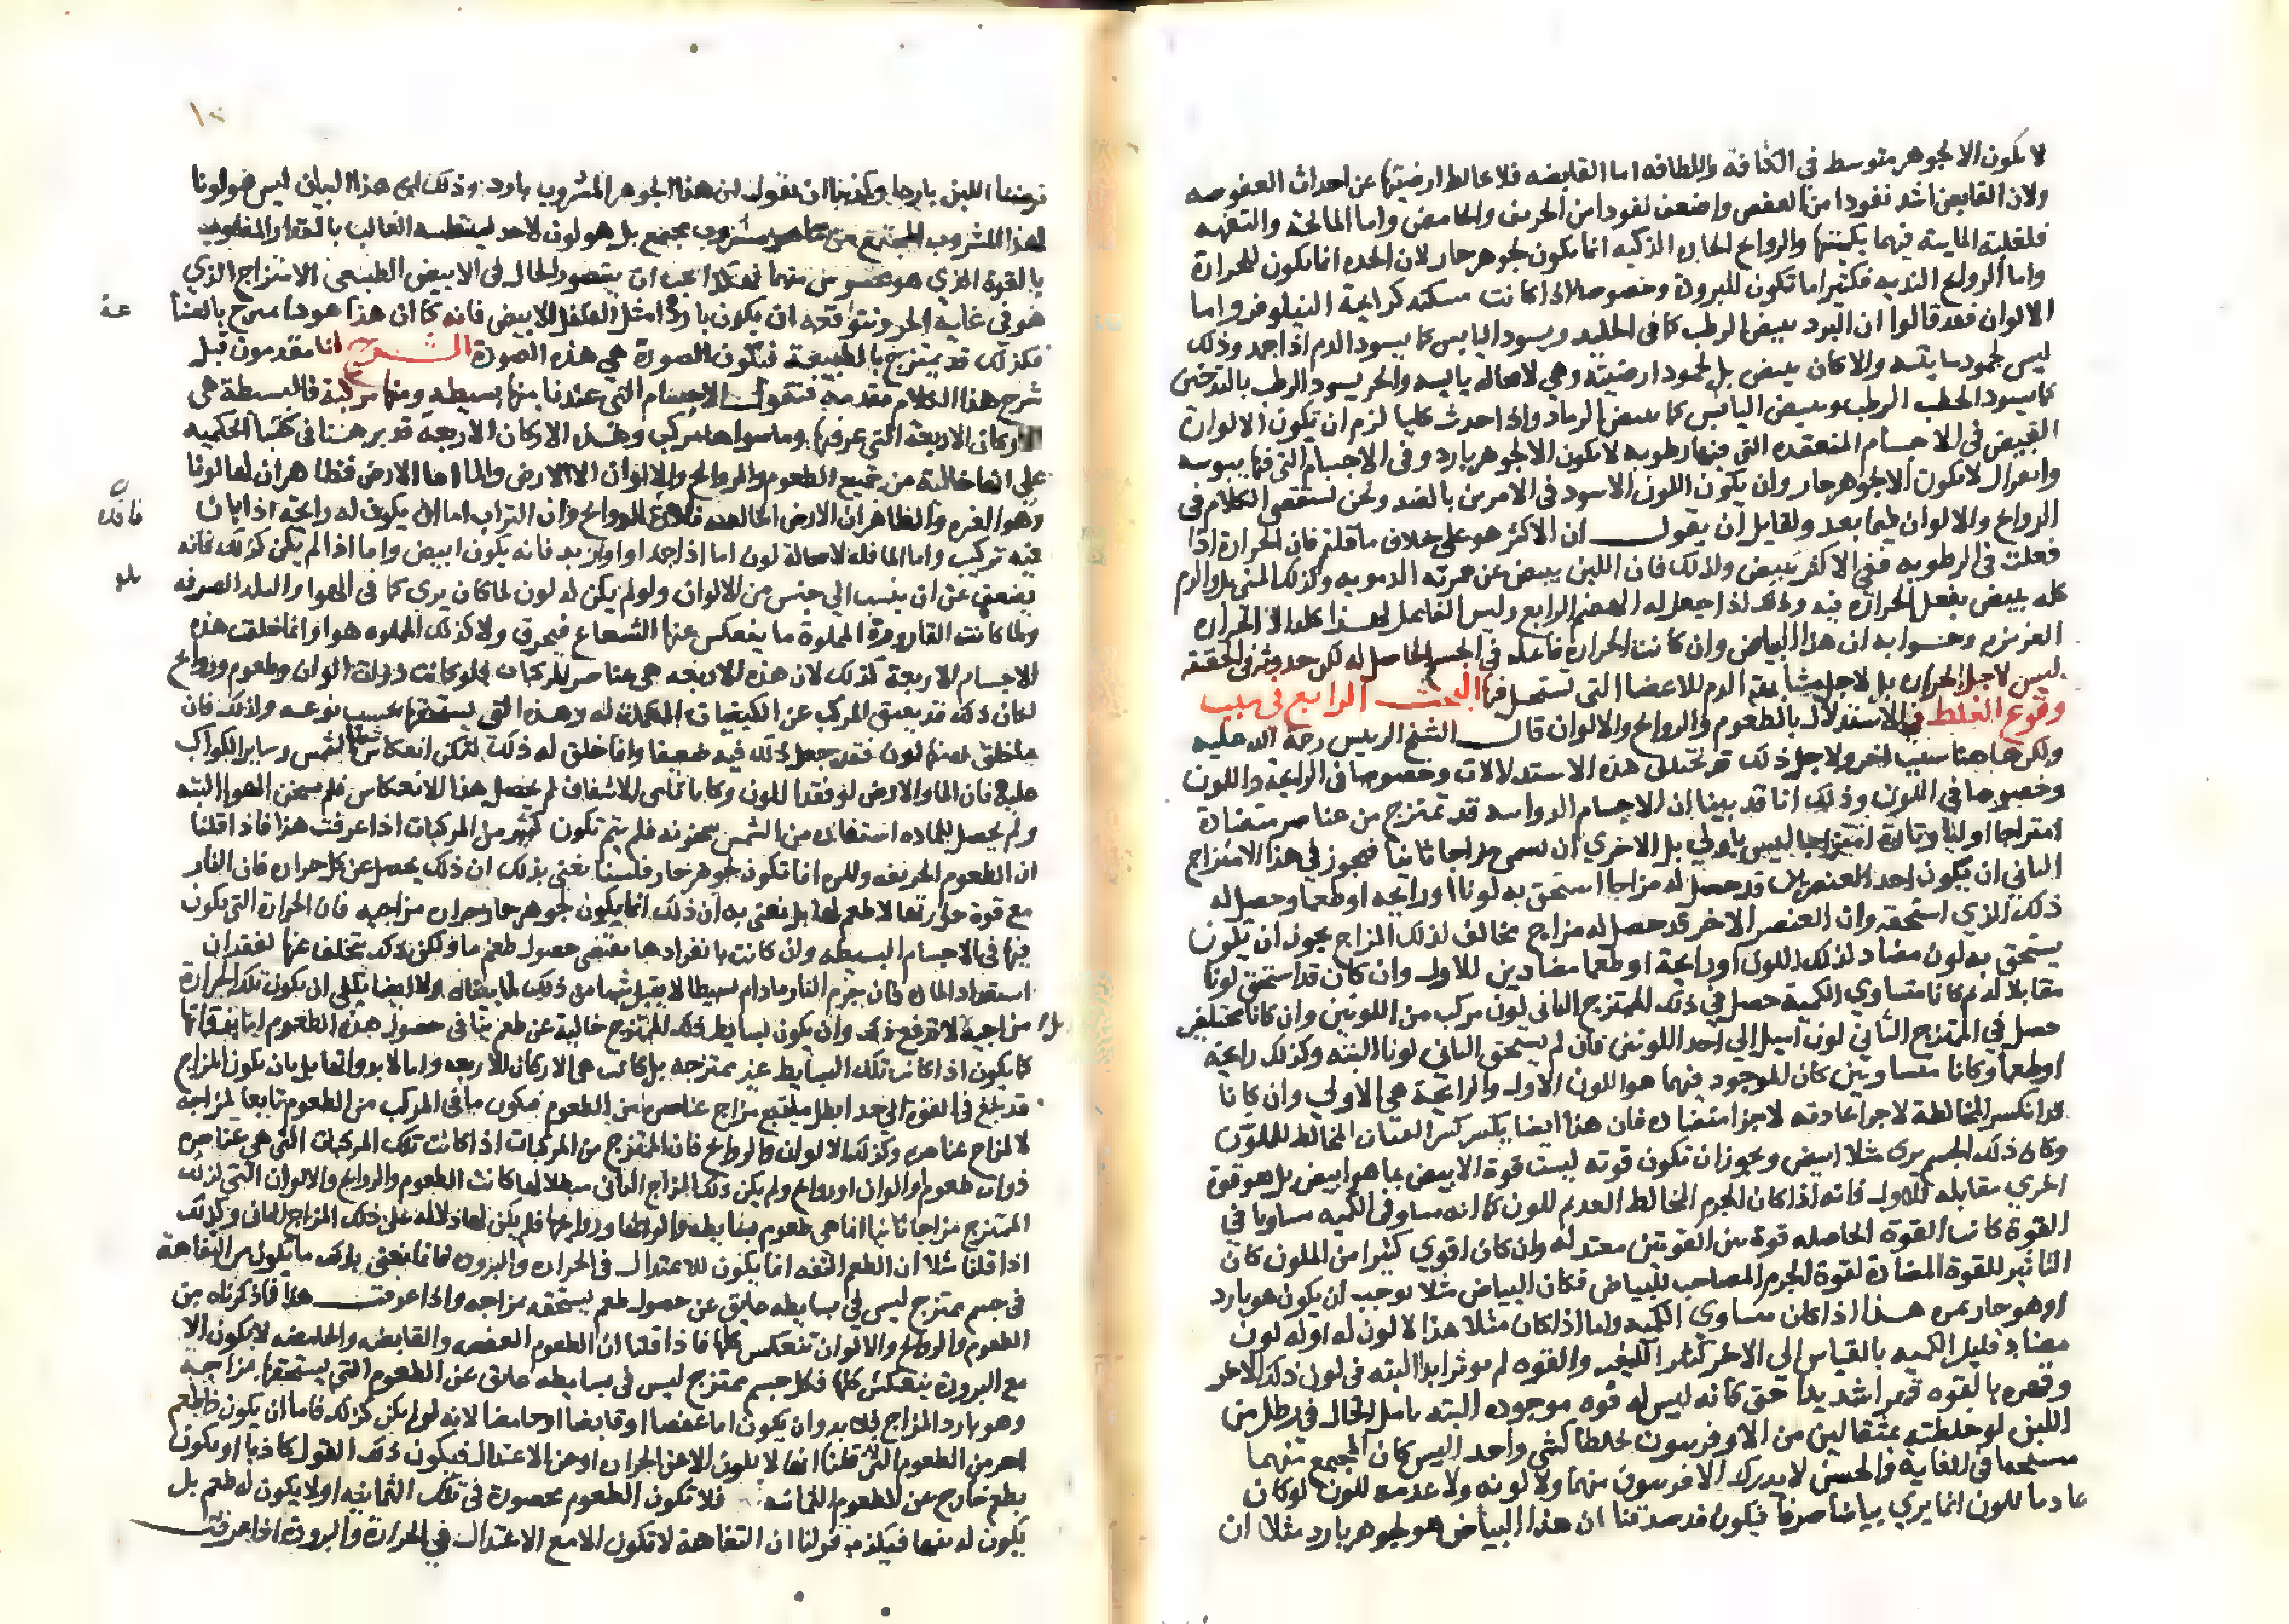 لا يكون الا لجوهر متوسط في الكثافة واللطافه اما القابضه فلا عالط ارضيتها عن احداث العفوصه
ولان القابض اشد نفودا من العفص واضعف نفودا من الحريف والحامض واما المالحة والتفهه
فلغلبة المايية فيهما بكيفيتها والروايح الحاده الذكيه انما يكون لجوهر حار لان الحده انما يكون للحرارة
واما الروايح النديه فكثيرا ما تكون للبرودة وخصوصا اذا كانت مسكنه كرايحة النيلوفر واما
الالوان فقد قالوا ان البرد يبيض الرطب كما في الجليد ويسود اليابس كما يسود الدم اذا جمد وذلك
ليس لجمود مايته والا كان يبيض بل لجمود ارضيته وهي لا محاله يابسه والحر يسود الرطب بالتدخين
كما يسود الحطب الرطب ويبيض اليابس كما يبيض الرماد واذا حدث كليا لزم ان تكون الالوان
البيض في الاجسام المنعقده التي فيها رطوبه لا يكون الا لجوهر بارد وفي الاجسام التي فيها يبوسه
لا يكون الا لجوهر حار وان يكون اللون الاسود في الامرين بالضد ونحن نستقصي الكلام في
الروايح والالوان فيما بعد ولقايل ان يقول ان الاكثر هو على خلاف ما قلتم فان الحرارة اذا
فعلت في الرطوبه ففي الاكثر تبيض ولذلك فان اللبن يبيض عن حمرته الدمويه وكذلك المني بل والدم
كله يبيض بفعل الحراره فيه وذلك اذا جعل له الهضم الرابع وليس الفاعل لهذا كله الا الحراره
الغريزيه وجوابه ان هذا البياض وان كانت الحراره فاعله في الجسم الحاصل له لكن حدوثه في الحقيقه
ليس لاجل الحراره بل لاجل مشابهة الدم للاعضا التي تستحيل فيها البحث الرابع في سبب
وقوع الغلط في الاستدلال بالطعوم والروايح والالوان قال الشيخ الرييس رحمة الله عليه
ولكن هاهنا سبب اخر ولاجل ذلك قد تختلف هذه الاستدلالات وخصوصا في الرايحة واللون
وخصوصا في اللون وذلك انا قد بينا ان الاجسام الدواييه قد تمتزج من عناصر متضادة
امتزاجا اوليا وتارة امتزاجا ليس باولي بل الاخري ان تسمي مزاجا ثانيا فيجوز في هذا الامتزاج
الثاني ان يكون احد العنصرين قد حصل له مزاجا استحق به لونا او رايحه او طعما وحصل له
ذلك الذي استحقه وان العنصر الاخر قد حصل له مزاج مخالف لذلك المزاج يجوز ان يكون
يستحق به لون مضاد لذلك اللون او رايحة او طعما مضادين للاول وان كان قد استحق لونا
مقابلا له ثم كانا متساوي الكمية حصل في ذلك الممتزج الثاني لون مركب من اللونين وان كانا مختلفين
حصل في الممتزج الثاني لون اميل الي احد اللونين فان لم يستحق الثاني لونا البته وكذلك رايحة
او طعما وكانا متساويين كان الموجود فيهما هو اللون الاول والرايحة هي الاولي وان كانا
قد انكسر المخالطة لاجزا عادته لاجزا متضاده فان هذا ايضا يكسر كسر العتاق المخالط للملوّن
وكان ذلك الجسم يرى مثلا ابيض ويجوز ان تكون قوته ليست قوة الابيض بما هو ابيض بل هو قوة
اخري مقابله للاول فانه اذا كان الجرم المخالط العديم للون كما انه مساو في الكميه مساويا في
القوة كانت القوة الحاصله قوة بين القوتين معتدله وان كان اقوي كثيرا من الملون كان
التاثير للقوة المضادة لقوة الجرم المصاحب للبياض فكان البياض مثلا يوجب ان يكون هو بارد
او هو حار بمره هذا اذا كان متساوي الكميه واما اذا كان مثلا هذا لا لون له او له لون
مضاد قليل الكميه بالقياس الي الاخر كثير الكيفيه والقوه لم يوثر ابدا البته في لون ذلك الاخر
وقهره بالقوه قهرا شديدا حتى كانه ليس له قوه موجوده البته تامل الحال في رطل من
اللبن لو خلطته بمثقالين من الاوفربيون خلطا كشي واحد اليس كان المجتمع منهما
مسخنا في الغاية والحسن لا يدرك الافربيون منهما ولا لونه ولا عدمه للون لو كان
عادما للون انما يري بياضا صرفا فيكون قد صدقنا ان هذا البياض هو لجوهر بارد مثلا ان
فرضنا اللبن باردا وكذبنا ان نقول ان هذا الجوهر المشروب بارد وذلك ان هذا البيان ليس هو لونا
لهذا المشروب المجتمع بل هو لون لاحد بسيطيه الغالب بالمقدار المغلوب
بالقوة الذي هو محسوس منهما فهكذا يجب ان يتصور الحال في الابيض الطبيعي الامتزاج الذي
هو في غاية الحر ونتوقعه ان يكون باردا مثل الفلفل الابيض فانه كما ان هذا هو دا يمزج بالصناعة
فكذلك قد يمتزج بالطبيعة فتكون الصورة هي هذه الصورة الشرح انا مقدمون قبل
شرح هذا الكلام مقدمه فنقول الاجسام التي عندنا منها بسيطه ومنها مركبة فالبسيطة هي
الاركان الاربعة التي عرفتها وما سواها مركب وهذه الاركان الاربعة قد برهنا في كتبنا الحكميه
على انها خالية من جميع الطعوم والروايح والالوان الا الارض والماء اما الارض فظاهر ان لها لونا
وهو الغبره والظاهر ان الارض الخالصه فاقدة للروايح وان التراب اما ان يكون له رايحة اذا بان
فيه تركيب واما الما فله لا محالة لون اما اذا جمد او ازبد فانه يكون ابيض واما اذا لم يكن كذلك فانه
يضعف عن ان ينسب الي جنس من الالوان ولو لم يكن له لون لما كان يري كما في الهوا والبلد الصرفه
ولما كانت القارورة المملوة ما ينعكس عنها الشعاع فيحرق ولا كذلك المملوه هوا وانما خلقت هذه
الاجسام الاربعة كذلك لان هذه الاربعه هي عناصر المركبات فلو كانت ذوات الوان وطعوم وروايح
لكان ذلك قد يعيق المركب عن الكيفيات المكملة له وهذه التي يستحقها بحسب نوعه ولذلك فان
ما خلق له منها لون فقد جعل ذلك فيه ضعيفا وانما خلق له ذلك ليمكن انعكاس شعاع الشمس وساير الكواكب
عليه فان الما والارض لو فقدا اللون وكانا تامي الاشفاف لم يحصل هذا الانعكاس فلم يسخن الهوا البته
ولم يحصل للماده استفاده من الشمس سخونه فلم يتم تكون كثير من المركبات اذا عرفت هذا فاذا قلنا
ان الطعوم الحريفه والمره انما تكون لجوهر حار فلسنا نعني بذلك ان ذلك يحصل عن كل حراره فان النار
مع قوة حرارتها لا طعم لها بل نعني به ان ذلك انما يكون لجوهر حار بحراره مزاجيه فان الحرارة التي تكون
فيها في الاجسام البسيطه وان كانت بانفرادها تقتضي حصول طعم ما ولكن ذلك يتخلف عنها لفقدان
استعداد المادة فان جرم النار ما دام بسيطا لا يقبل شيا من ذلك لما بيناه ولا ايضا يكفي ان يكون تلك الحرارة
مزاجية لا ترفع ذلك وان يكون بسايط ذلك الممتزج خالية عن طعم ينافي حصول هذه الطعوم
كما يكون اذا كانت تلك البسايط غير ممتزجه بل كانت هي الاركان الاربعه واما لا بد والقايل بان يكون المزاج
قد بلغ في القوة الي حد ابطل ما يتبع مزاج عناصره من الطعوم فيكون ما في المركب من الطعوم تابعا لمزاجه
لا لمزاج عناصره وكذلك الالوان والروايح فان الممتزج من المركبات اذا كانت تلك المركبات التي هي عناصره
ذوات طعوم والوان وروايح ولم يكن ذلك المزاج الثاني مبطلا لها كانت الطعوم والروايح والالوان التي لذلك
الممتزج مزاجا ثانيا انما هي طعوم بسايطه والوانها وروايحها فلم يكن لها دلاله على ذلك المزاج الثاني وكذلك
اذا قلنا مثلا ان الطعم التفه انما يكون للاعتدال في الحراره والبروده فانما نعني بذلك ما يكون من التفاهة
في جسم ممتزج ليس في بسايطه عايق عن حصول طعم يستحقه مزاجه واذا عرفت هذا فما ذكرناه من
الطعوم والروايح والالوان تنعكس كلها فاذا قلنا ان الطعوم العفص والقابض والحامضه لا يكون الا
مع البرودة ينعكس كلها فكل جسم ممتزج ليس في بسايطه عايق عن الطعوم التي يستحقها مزاجه
وهو بارد المزاج فلا بد وان يكون اما عفصا او قابضا او حامضا لانه لو لم يكن كذلك فاما ان يكون ذا طعم
اخر من الطعوم التي قلنا انها لا تكون الا عن الحراره او عن الاعتدال فيكون ذلك القول كاذبا او يكون
بطعم خارج عن الطعوم الثمانيه فلا تكون الطعوم محصورة في تلك الثمانية او لا يكون له طعم بل
يكون له تفها فيكذب قولنا ان التفاهة لا تكون الا مع الاعتدال في الحرارة والبرودة اذا عرفت